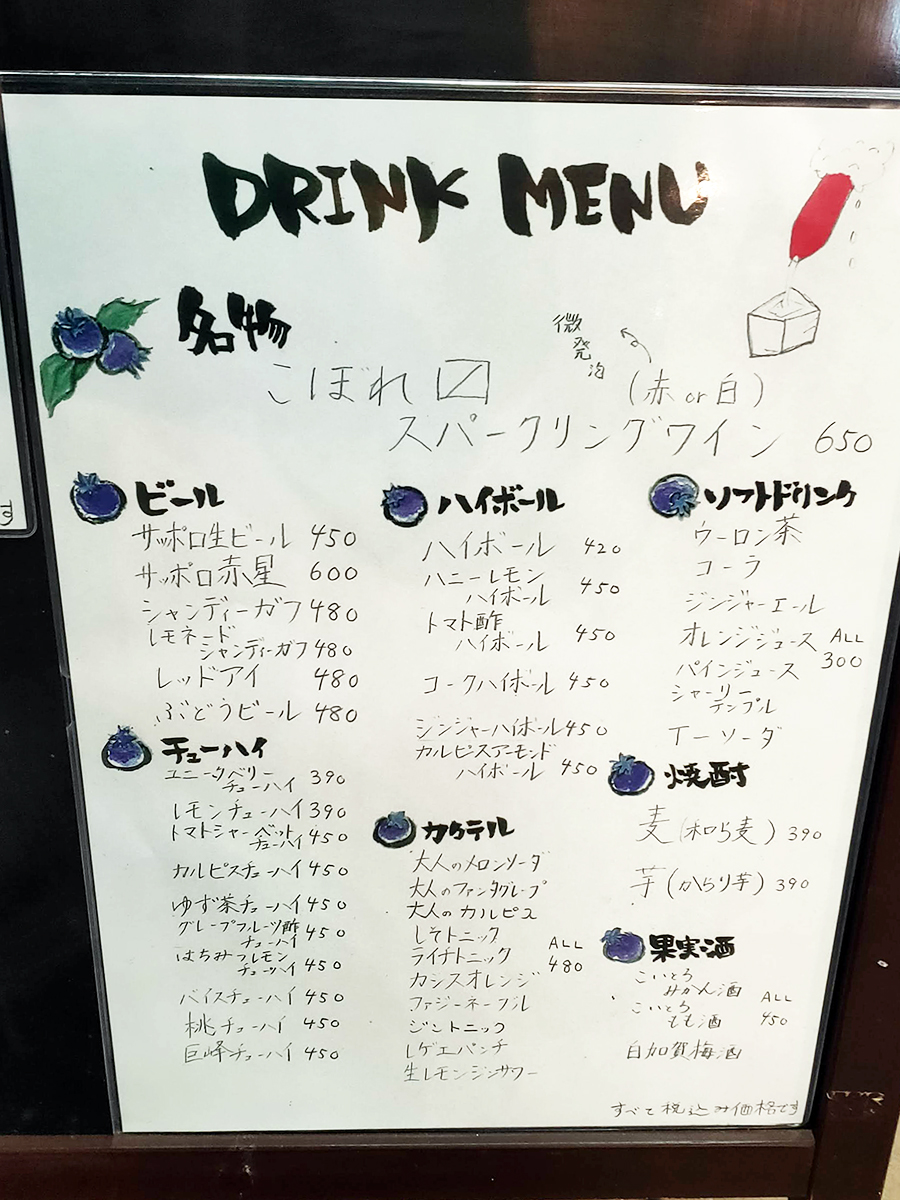 DRINK MENU
名物
微発泡
こぼれ〼
(赤or白)
スパークリングワイン 650
ビール
サッポロ生ビール 450
サッポロ赤星 600
シャンディーガフ 480
レモネード
シャンディーガフ 480
レッドアイ 480
ぶどうビール 480
チューハイ
チューハイ 390
レモンチューハイ 390
トマトシャーベット
チューハイ 450
カルピスチューハイ 450
ゆず茶チューハイ 450
グレープフルーツ酢
チューハイ 450
はちみつレモン
チューハイ 450
バイスチューハイ 450
桃チューハイ 450
巨峰チューハイ 450
ハイボール
ハイボール 420
ハニーレモン
ハイボール 450
トマト酢
ハイボール 450
コークハイボール 450
ジンジャーハイボール 450
カルピスアーモンド
ハイボール 450
カクテル
大人のメロンソーダ
大人のファンタグレープ
大人のカルピス
しそトニック
ライチトニック
カシスオレンジ
ファジーネーブル
ジントニック
レゲエパンチ
生レモンジンサワー
ALL
480
ソフトドリンク
ウーロン茶
コーラ
ジンジャーエール
オレンジジュース
パインジュース
シャーリー
テンプル
ALL
300
焼酎
麦(和ら麦) 390
芋(からり芋) 390
果実酒
こいとろ
みかん酒
こいとろ
もも酒
白加賀梅酒
ALL
450
すべて税込み価格です
す